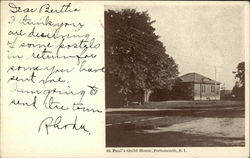 Dear Bertha
I think you
are deserving
of some postals
in return for
some you have
sent me.
I am going to
send the town
Rhoda
St. Paul's Guild House, Portsmouth, R. I.